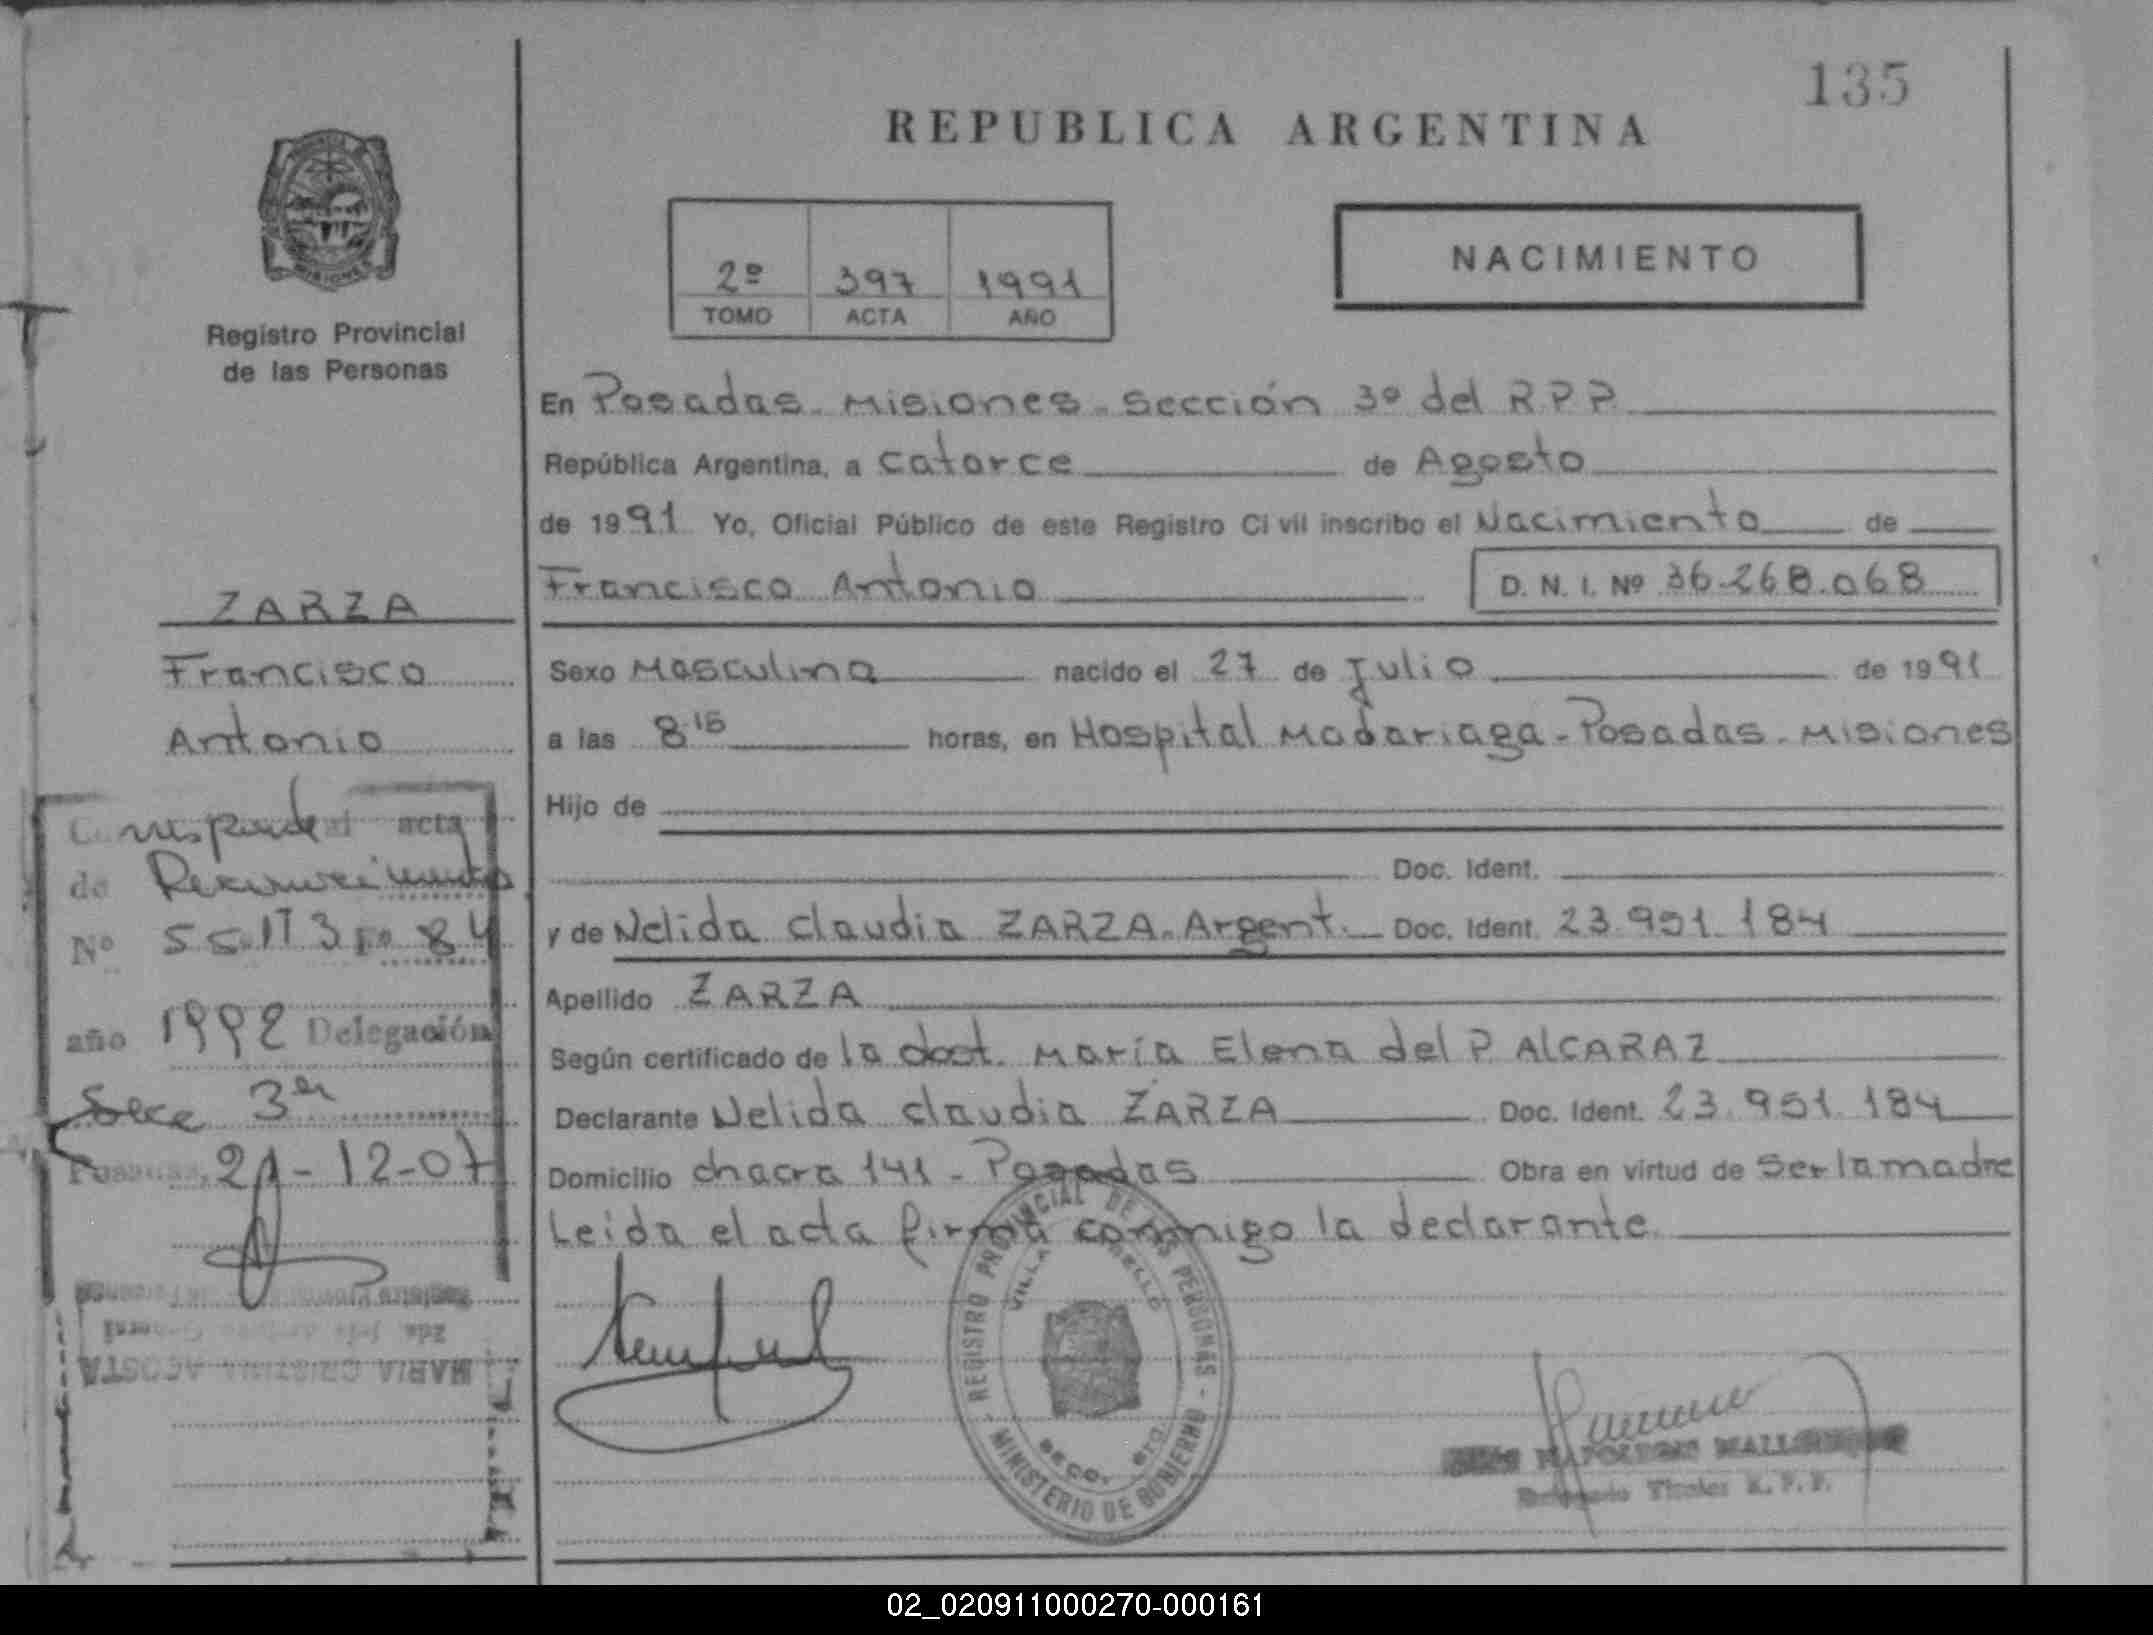 135
REPUBLICA ARGENTINA
MISIONES
Registro Provincial
de las Personas
2º 397 1991
TOMO ACTA AÑO
NACIMIENTO
En Posadas - Misiones - Sección 3º del R.P.P.
República Argentina, a catorce de Agosto
de 1991 Yo, Oficial Público de este Registro Civil inscribo el Nacimiento de
Francisco Antonio D. N. I. Nº 36.268.068
ZARZA
Francisco
Antonio
Sexo Masculino nacido el 27 de Julio de 1991
a las 8 15 horas, en Hospital Madariaga - Posadas - Misiones
Hijo de
Doc. Ident.
y de Nelida Claudia ZARZA - Argent. Doc. Ident. 23.951.184
Apellido ZARZA
Según certificado de la doct. María Elena del P. ALCARAZ
Declarante Nelida Claudia ZARZA Doc. Ident. 23.951.184
Domicilio chacra 141 - Posadas Obra en virtud de ser la madre
Leida el acta firma conmigo la declarante
Corresponde al acta
de Reconocimiento
Nº 55 Tº 3 Fº 84
año 1992 Delegación
Secc 3er
Posadas, 21-12-07
MARIA CRISTINA ACOSTA
REGISTRO PROVINCIAL DE LAS PERSONAS - MINISTERIO DE GOBIERNO -
VILLA
NAPOLEON
Delegado Titular R.P.P.
02_020911000270-000161